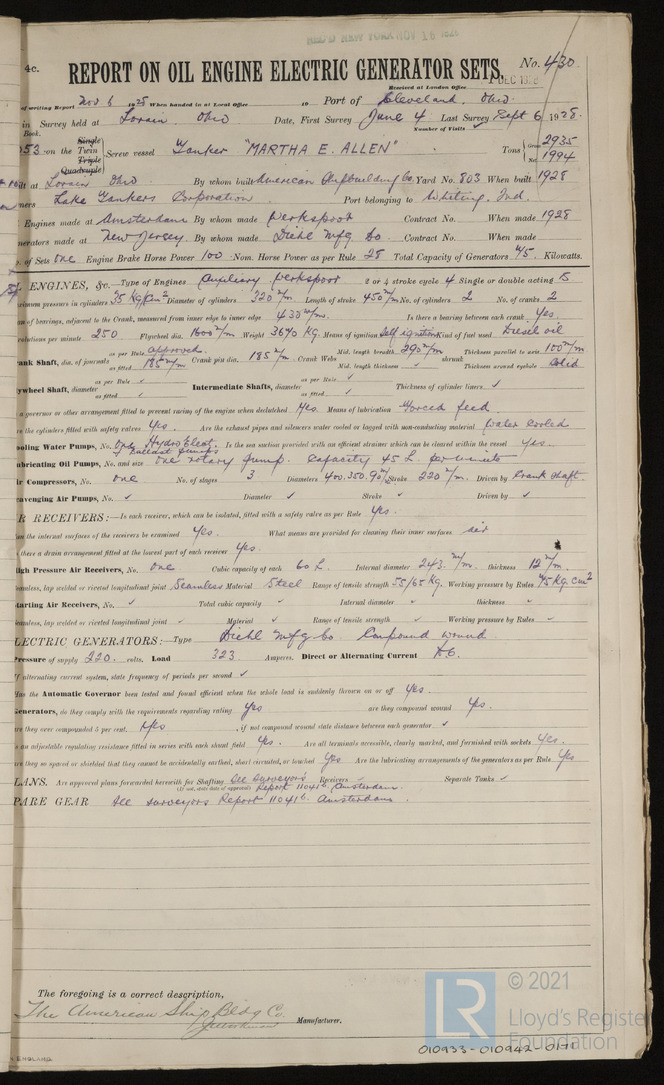 REC'D NEW YORK NOV 16 1928
4c. REPORT ON OIL ENGINE ELECTRIC GENERATOR SETS. No. 430
Received at London Office DEC 1928
of writing Report Nov 6 1928 When handed in at Local Office 19 Port of Cleveland, Ohio.
in Survey held at Lorain, Ohio Date, First Survey June 4 Last Survey Sept 6 1928.
Book. Number of Visits ✓
53 on the Single Twin Triple Quadruple Screw vessel Tanker "MARTHA E. ALLEN" Tons Gross 2935 Net 1994
at Lorain Ohio By whom built American Shipbuilding Co. Yard No. 803 When built 1928
ners Lake Tankers Corporation Port belonging to Whiting, Ind.
Engines made at Amsterdam By whom made Werkspoor Contract No. When made 1928
nerators made at New Jersey By whom made Diehl Mfg Co Contract No. When made
of Sets One Engine Brake Horse Power 100 Nom. Horse Power as per Rule 28 Total Capacity of Generators 75 Kilowatts.
ENGINES, &c. Type of Engines Auxiliary Werkspoor 2 or 4 stroke cycle 4 Single or double acting S
ximum pressure in cylinders 35 Kg/cm² Diameter of cylinders 320 m/m Length of stroke 450 m/m No. of cylinders 2 No. of cranks 2
an of bearings, adjacent to the Crank, measured from inner edge to inner edge 430 m/m. Is there a bearing between each crank Yes.
volutions per minute 250 Flywheel dia. 1600 m/m Weight 3670 KG. Means of ignition Self ignition Kind of fuel used Diesel oil
rank Shaft, dia. of journals as per Rule approved as fitted 185 m/m Crank pin dia. 185 m/m Crank Webs Mid. length breadth 290 m/m Mid. length thickness ✓ shrunk Thickness parallel to axis 100 m/m Thickness around eyehole Solid
ywheel Shaft, diameter as per Rule ✓ as fitted ✓ Intermediate Shafts, diameter as per Rule ✓ as fitted ✓ Thickness of cylinder liners ✓
a governor or other arrangement fitted to prevent racing of the engine when declutched Yes. Means of lubrication Forced feed.
re the cylinders fitted with safety valves Yes. Are the exhaust pipes and silencers water cooled or lagged with non-conducting material Water cooled
ooling Water Pumps, No. One Hydro Elect. & Ballast pumps Is the sea suction provided with an efficient strainer which can be cleared within the vessel Yes.
ubricating Oil Pumps, No. and size One rotary pump. Capacity 45 L. per minute
ir Compressors, No. One No. of stages 3 Diameters 400.350.90 m/m Stroke 220 m/m. Driven by Crank shaft.
cavenging Air Pumps, No. ✓ Diameter ✓ Stroke ✓ Driven by ✓
R RECEIVERS:— Is each receiver, which can be isolated, fitted with a safety valve as per Rule Yes.
an the internal surfaces of the receivers be examined Yes. What means are provided for cleaning their inner surfaces air
s there a drain arrangement fitted at the lowest part of each receiver Yes.
igh Pressure Air Receivers, No. One Cubic capacity of each 60 L. Internal diameter 243. m/m. thickness 12 m/m.
eamless, lap welded or riveted longitudinal joint Seamless Material Steel Range of tensile strength 55/65 Kg. Working pressure by Rules 75 Kg. cm²
tarting Air Receivers, No. ✓ Total cubic capacity ✓ Internal diameter ✓ thickness ✓
eamless, lap welded or riveted longitudinal joint ✓ Material ✓ Range of tensile strength ✓ Working pressure by Rules ✓
LECTRIC GENERATORS:— Type Diehl Mfg Co Compound wound
ressure of supply 220. volts. Load 323 Amperes. Direct or Alternating Current
f alternating current system, state frequency of periods per second ✓
as the Automatic Governor been tested and found efficient when the whole load is suddenly thrown on or off Yes.
enerators, do they comply with the requirements regarding rating Yes are they compound wound Yes.
re they over compounded 5 per cent. Yes , if not compound wound state distance between each generator ✓
s an adjustable regulating resistance fitted in series with each shunt field Yes. Are all terminals accessible, clearly marked, and furnished with sockets Yes.
re they so spaced or shielded that they cannot be accidentally earthed, short circuited, or touched Yes Are the lubricating arrangements of the generators as per Rule Yes
LANS. Are approved plans forwarded herewith for Shafting See surveyor's Report 11041b Amsterdam. Receivers ✓ Separate Tanks ✓
(If not, state date of approval)
PARE GEAR See surveyors Report 11041b. Amsterdam.
The foregoing is a correct description,
The American Ship Bldg Co.
Manufacturer.
ENGLAND.
LR © 2021
Lloyd's Register
Foundation
010933-010942-0171